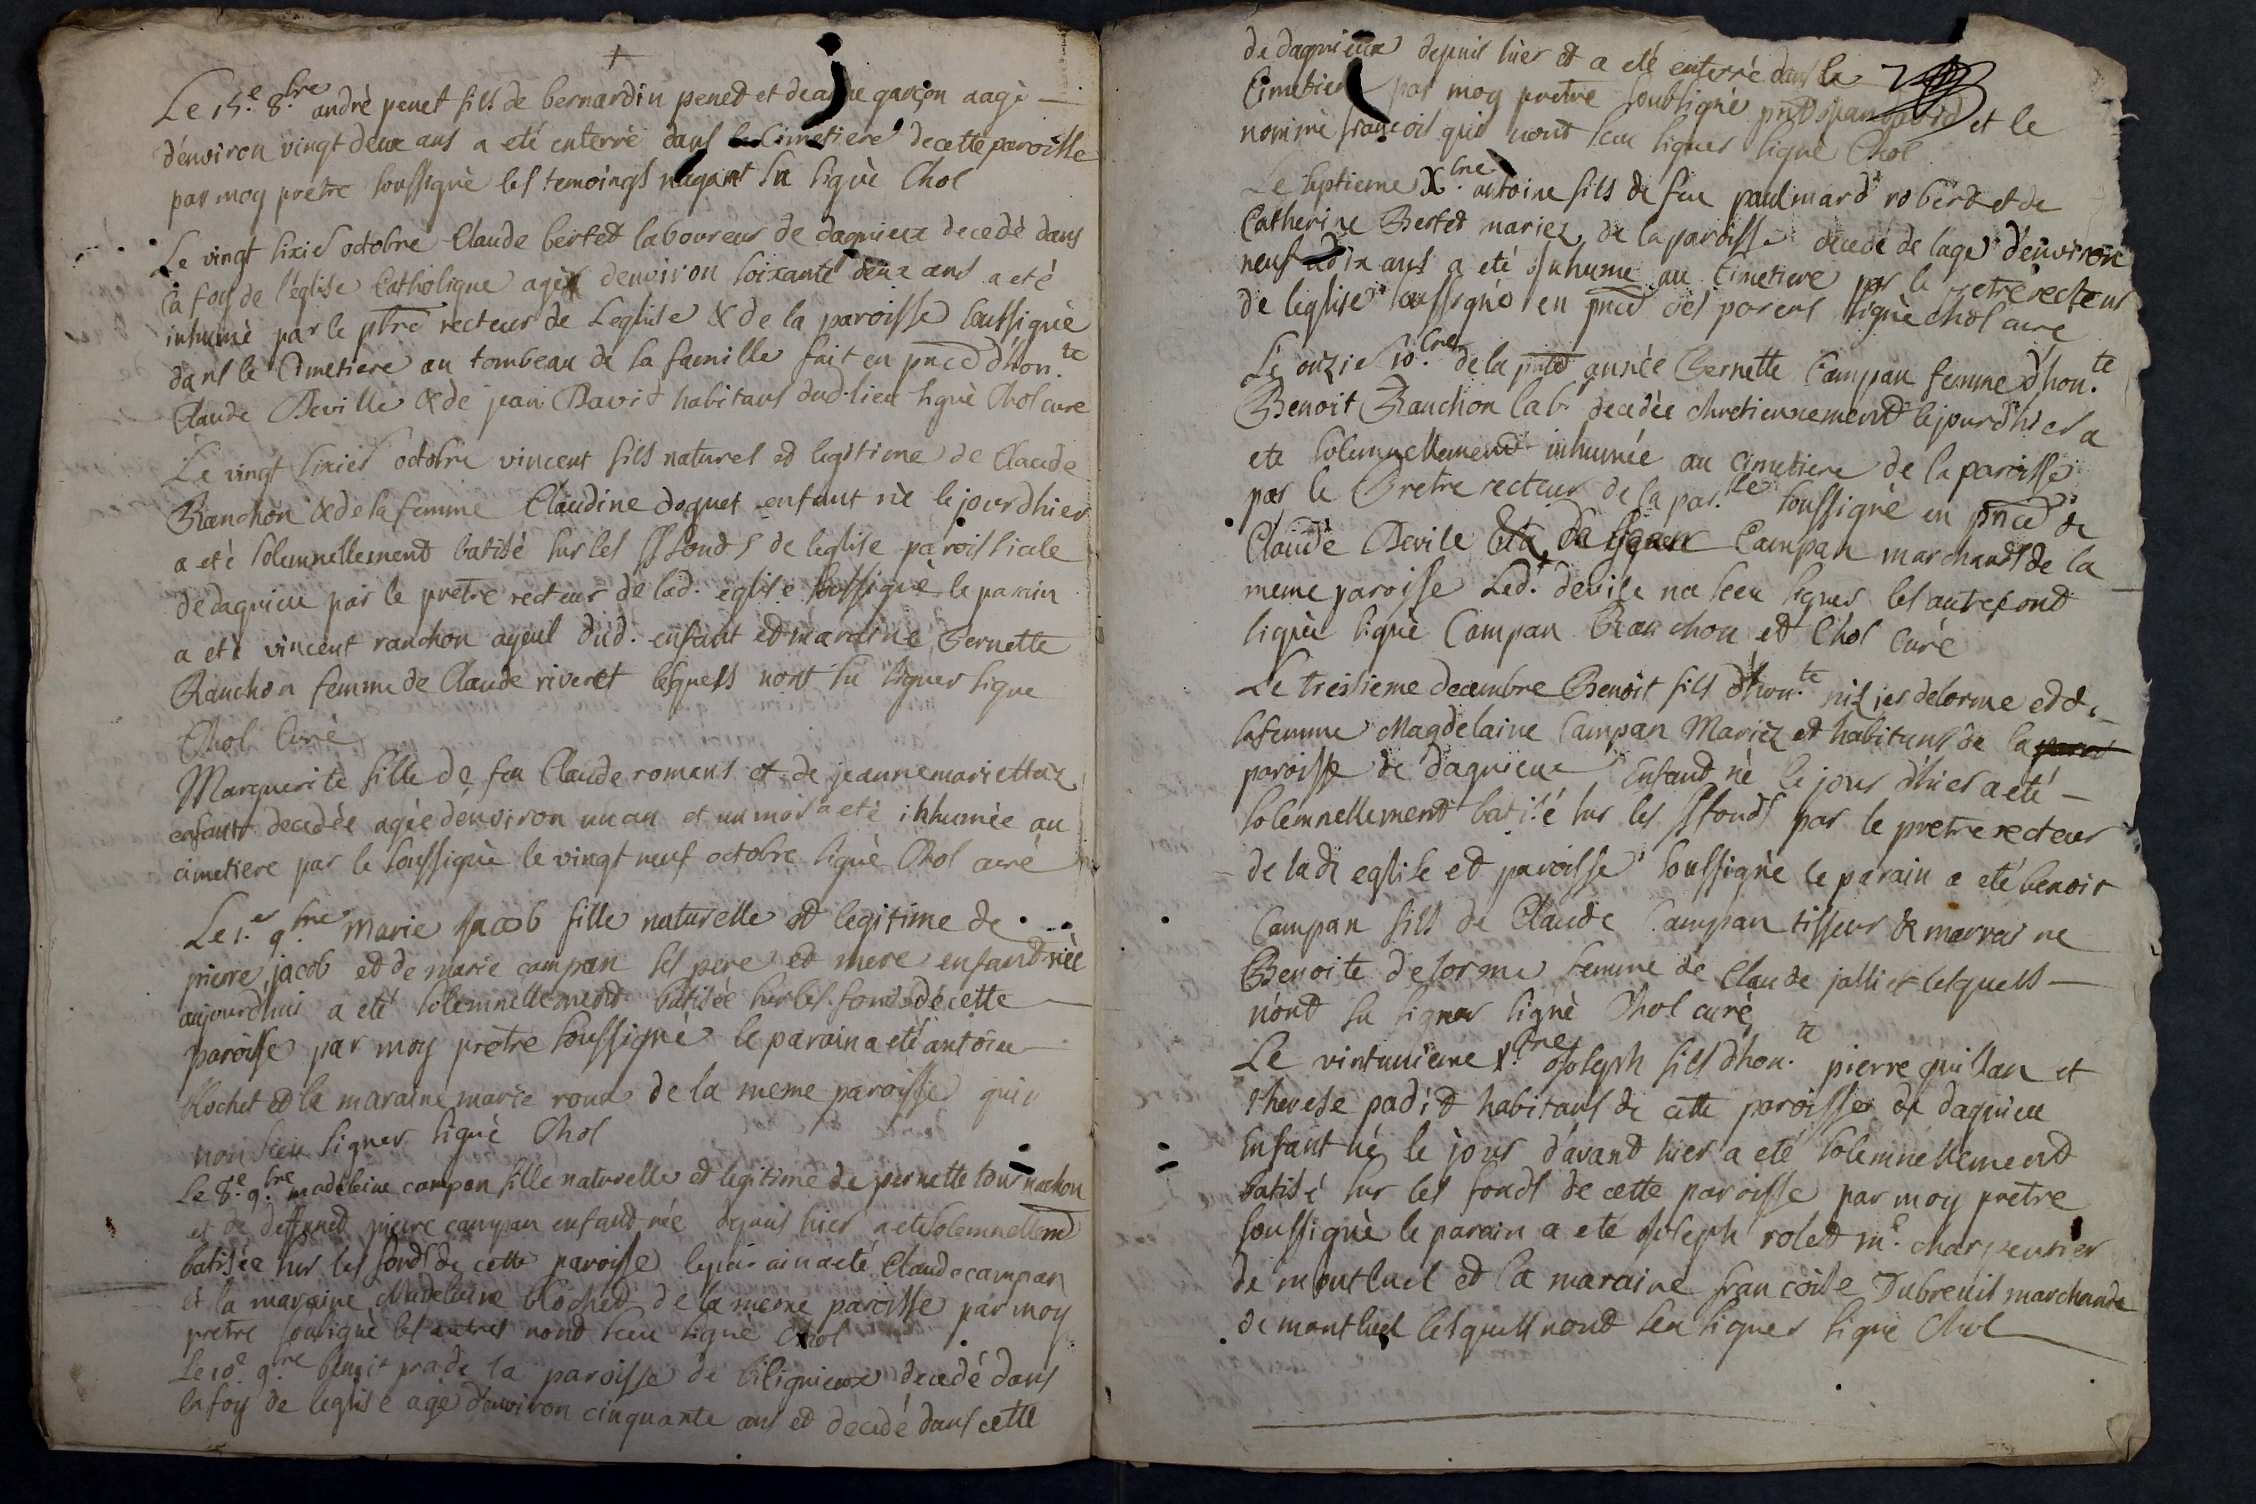 Le 15.e 8.bre andrè penet fils de bernardin penet et de garçon aagè
d'environ vingt deux ans a eté enterrè dans le Cimetiere de cette paroisse
par moy pretre soussignè les temoings nayant su signè Chol
Le vingt sixie octobre Claude bertet laboureur de dagnieux decedè dans
la foy de l'église Catholique agè denviron soixante deux ans a eté
inhumè par le ptre recteur de Leglise & de la paroisse soussignè
dans le Cimetiere au tombeau de sa famille fait en pnce d'hon.te
Claude Deville & de jean David habitans dud. lieu signè Chol cure
Le vingt sixies octobre vincent fils naturel et legitime de Claude
Ranchon & de sa femme Claudine doquet enfant nè le jourdhier
a etè solemnellement batisé sur les ffonds de leglise paroissiale
de dagnieu par le pretre recteur de lad. eglise soussignè le parain
a etè vincent ranchon ayeul dud. enfant et maraine Bernette
Ranchon femme de Claude riveret lesquels nont su signer signe
Chol Curè
Marguerite fille de feu Claude romans et de jeanne marie
enfant decedèe agèe denviron un an et un mois a etè inhumèe au
cimetiere par le soussignè le vingt neuf octobre signè Chol curè
Le 1.er 9.bre Marie jacob fille naturelle et legitime de
pierre jacob et de marie campan ses pere et mere enfant nèe
aujourdhui a eté solemnellement batisèe sur les fonds de cette
paroisse par moy prètre soussigné le parain a eté antoine
Rochet et la maraine marie roux de la meme paroisse qui
non sceu signer signè Chol
Le 8.e 9.bre madeleine campan fille naturelle et legitime de pernette tournachon
et de deffunct pierre campan enfant nèe depuis hier a eté solemnellemt
batisèe sur les fonds de cette paroisse le parain a eté Claude campan
et la maraine Madelaine Rochet de la meme paroisse par moy
pretre sousignè les autres nont sceu signè Chol
Le 10.e 9.bre benoit prade la paroisse de bilignieux decedé dans
la foy de leglise agè d'environ cinquante ans et decedé dans cette
de dagnieux depuis hier et a eté enterrè dans le
Cimetier par moy pretre soubsignè pnts et le
nommè francois qui nont sceu signer signè Chol
Le septieme X.bre antoine fils de feu paul mard robert et de
Catherine Bertet mariez de la paroisse decedé de lage d'environ
neuf a dix ans a etè inhume au Cimetiere par le pretre recteur
de leglise soussigné en pnce des parens signè chol cure
Le onzie 10.bre de la pnte annèe Bernette Campan femme d'hon.te
Benoit Ranchon lab.r decedèe chretiennement le jourdhier a
ete solennellement inhumée au cimetiere de la paroisse
par le Pretre recteur de la par.sse soussignè en pnce de
Claude Devile Campan marchands de la
meme paroisse Led. devile na sceu signer les autres ont
signès signè Campan Ranchon et Chol Curè
Le treisieme decembre Benoit fils d'hon.te nizier delorme et de
sa femme Magdelaine Campan Mariez et habitans de la paroi
paroisse de dagnieux Enfant nè le jour d'hier a eté
solemnellement batisé sur les ffonds par le pretre recteur
de lad. eglise et paroisse soussignè le parain a eté benoit
Campan fils de Claude Campan tisseur & marraine
Benoite delorme femme de Claude jallier lesquels
nont su signer signè Chol curè
Le vintunieme X.bre Joseph fils d'hon.te pierre et
therese habitans de cette paroisse de dagnieu
Enfant nè le jour d'avant hier a eté solemnellement
batisé sur les fonds de cette paroisse par moy prètre
soussignè le parain a eté Joseph rolet m.e charpentier
de montluel et la maraine francoise Dubreuil marchande
de montluel lesquels nont sceu signer signe Chol